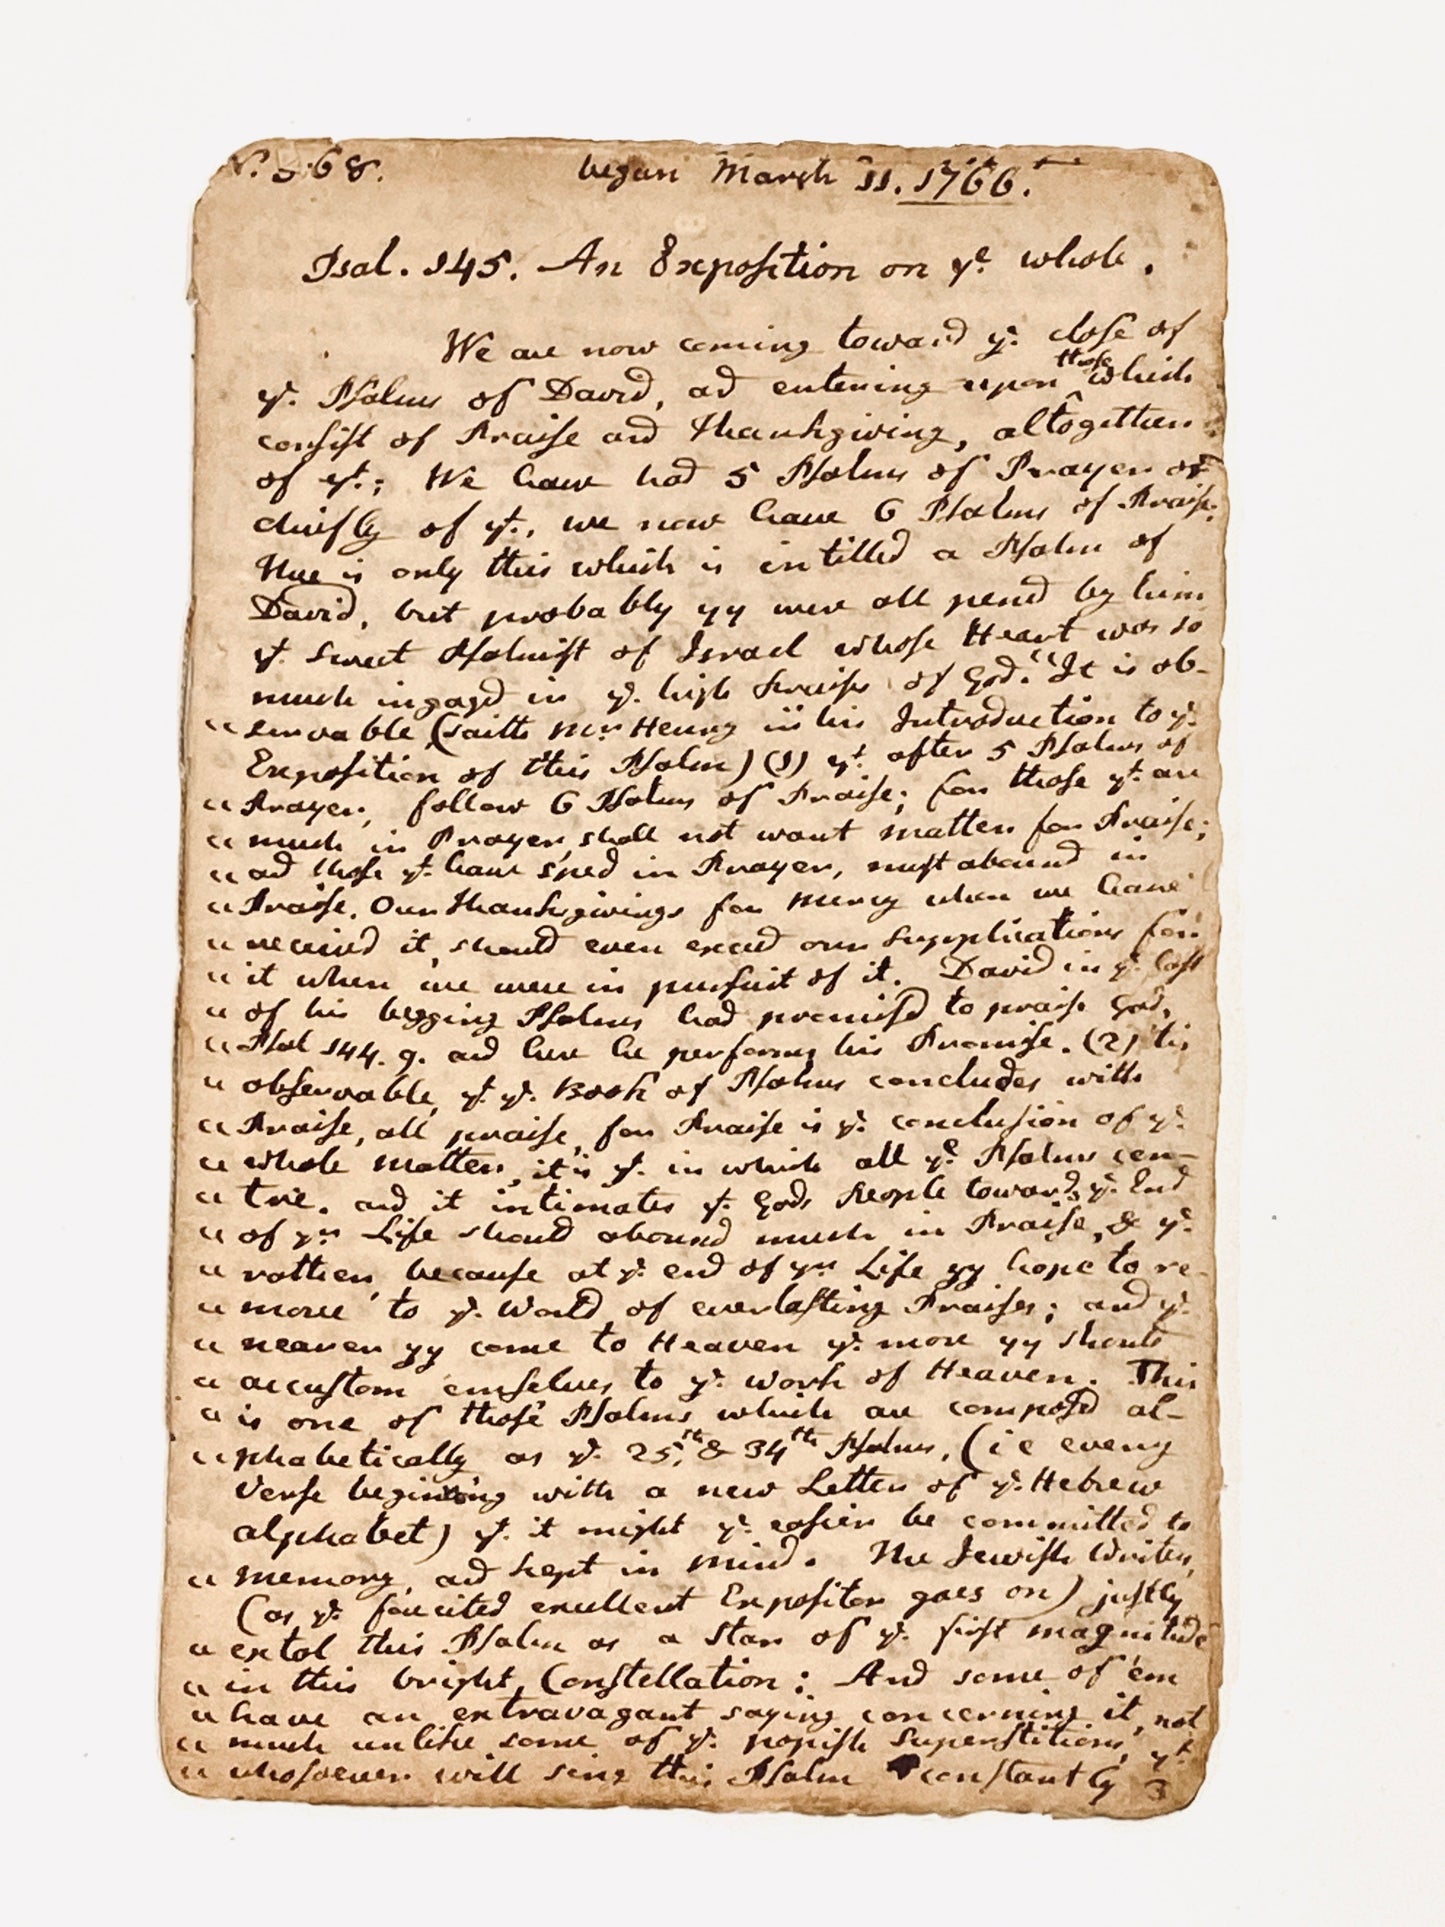 N. 568. began March 11. 1766.
Psal. 145. An Exposition on ye whole.
We are now coming toward ye close of
ye Psalms of David, ad entering upon those which
consist of Praise and Thanksgiving, altogether
of yt; We have had 5 Psalms of Prayer or
chiefly of yt., we now have 6 Psalms of Praise.
'Tis only this which is intitled a Psalm of
David, but probably yy were all pened by him
ye sweet Psalmist of Israel whose Heart was so
much ingaged in ye high Praises of God. "It is ob-
" servable (saith Mr Henry in his Introduction to ye
Exposition of this Psalm) (1) yt after 5 Psalms of
" Prayer, follow 6 Psalms of Praise; for those yt are
" much in Prayer, shall not want matter for Praise;
" ad those yt have s'ped in Prayer, must abound in
" Praise. Our Thanksgivings for mercy when we have
" received it, should even exceed our Supplications for
" it when we were in pursuit of it. David in ye last
" of his begging Psalms had promised to praise God,
" Psal 144. 9. ad here he performs his Promise. (2) 'tis
" observable, yt ye Book of Psalms concludes with
" Praise, all praise, for Praise is ye conclusion of ye
" whole matter, it is yt in which all ye Psalms cen-
" tre. ad it intimates yt Gods People toward ye End
" of yr Life should abound much in Praise, & ye
" rather, because at ye end of yr Life yy hope to re-
" move to ye World of everlasting Praises; and ye
" nearer yy come to Heaven ye more yy should
" accustom emselves to ye work of Heaven. This
" is one of those Psalms which are composd al-
" phabetically as ye 25th & 34th Psalms, (ie every
Verse begining with a new Letter of ye Hebrew
alphabet) yt it might ye easier be committed to
" memory, ad kept in mind. The Jewish Writers,
(as ye forecited excellent Expositor goes on) justly
" extol this Psalm as a Star of ye first magnitude
" in this bright Constellation: And some of 'em
" have an extravagant saying concerning it, not
" much unlike some of ye popish Superstitions, yt
" whosoever will sing this Psalm constantly 3